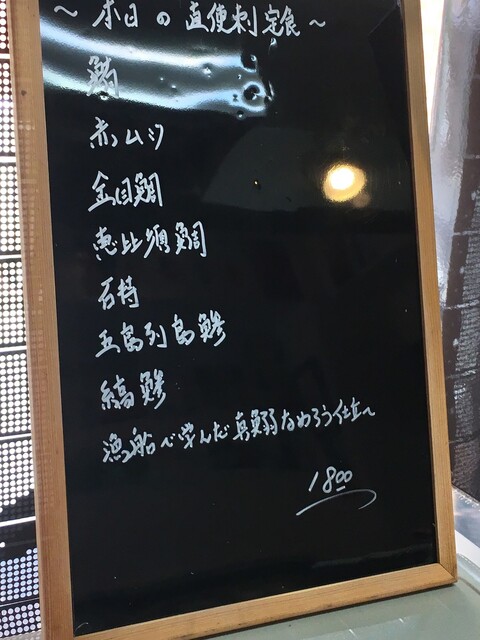 〜本日の直便刺定食〜
赤ムツ
金目鯛
恵比須鯛
石持
五島列島鯵
縞鯵
漁船で学んだ真鰯なめろう仕立〜
1800